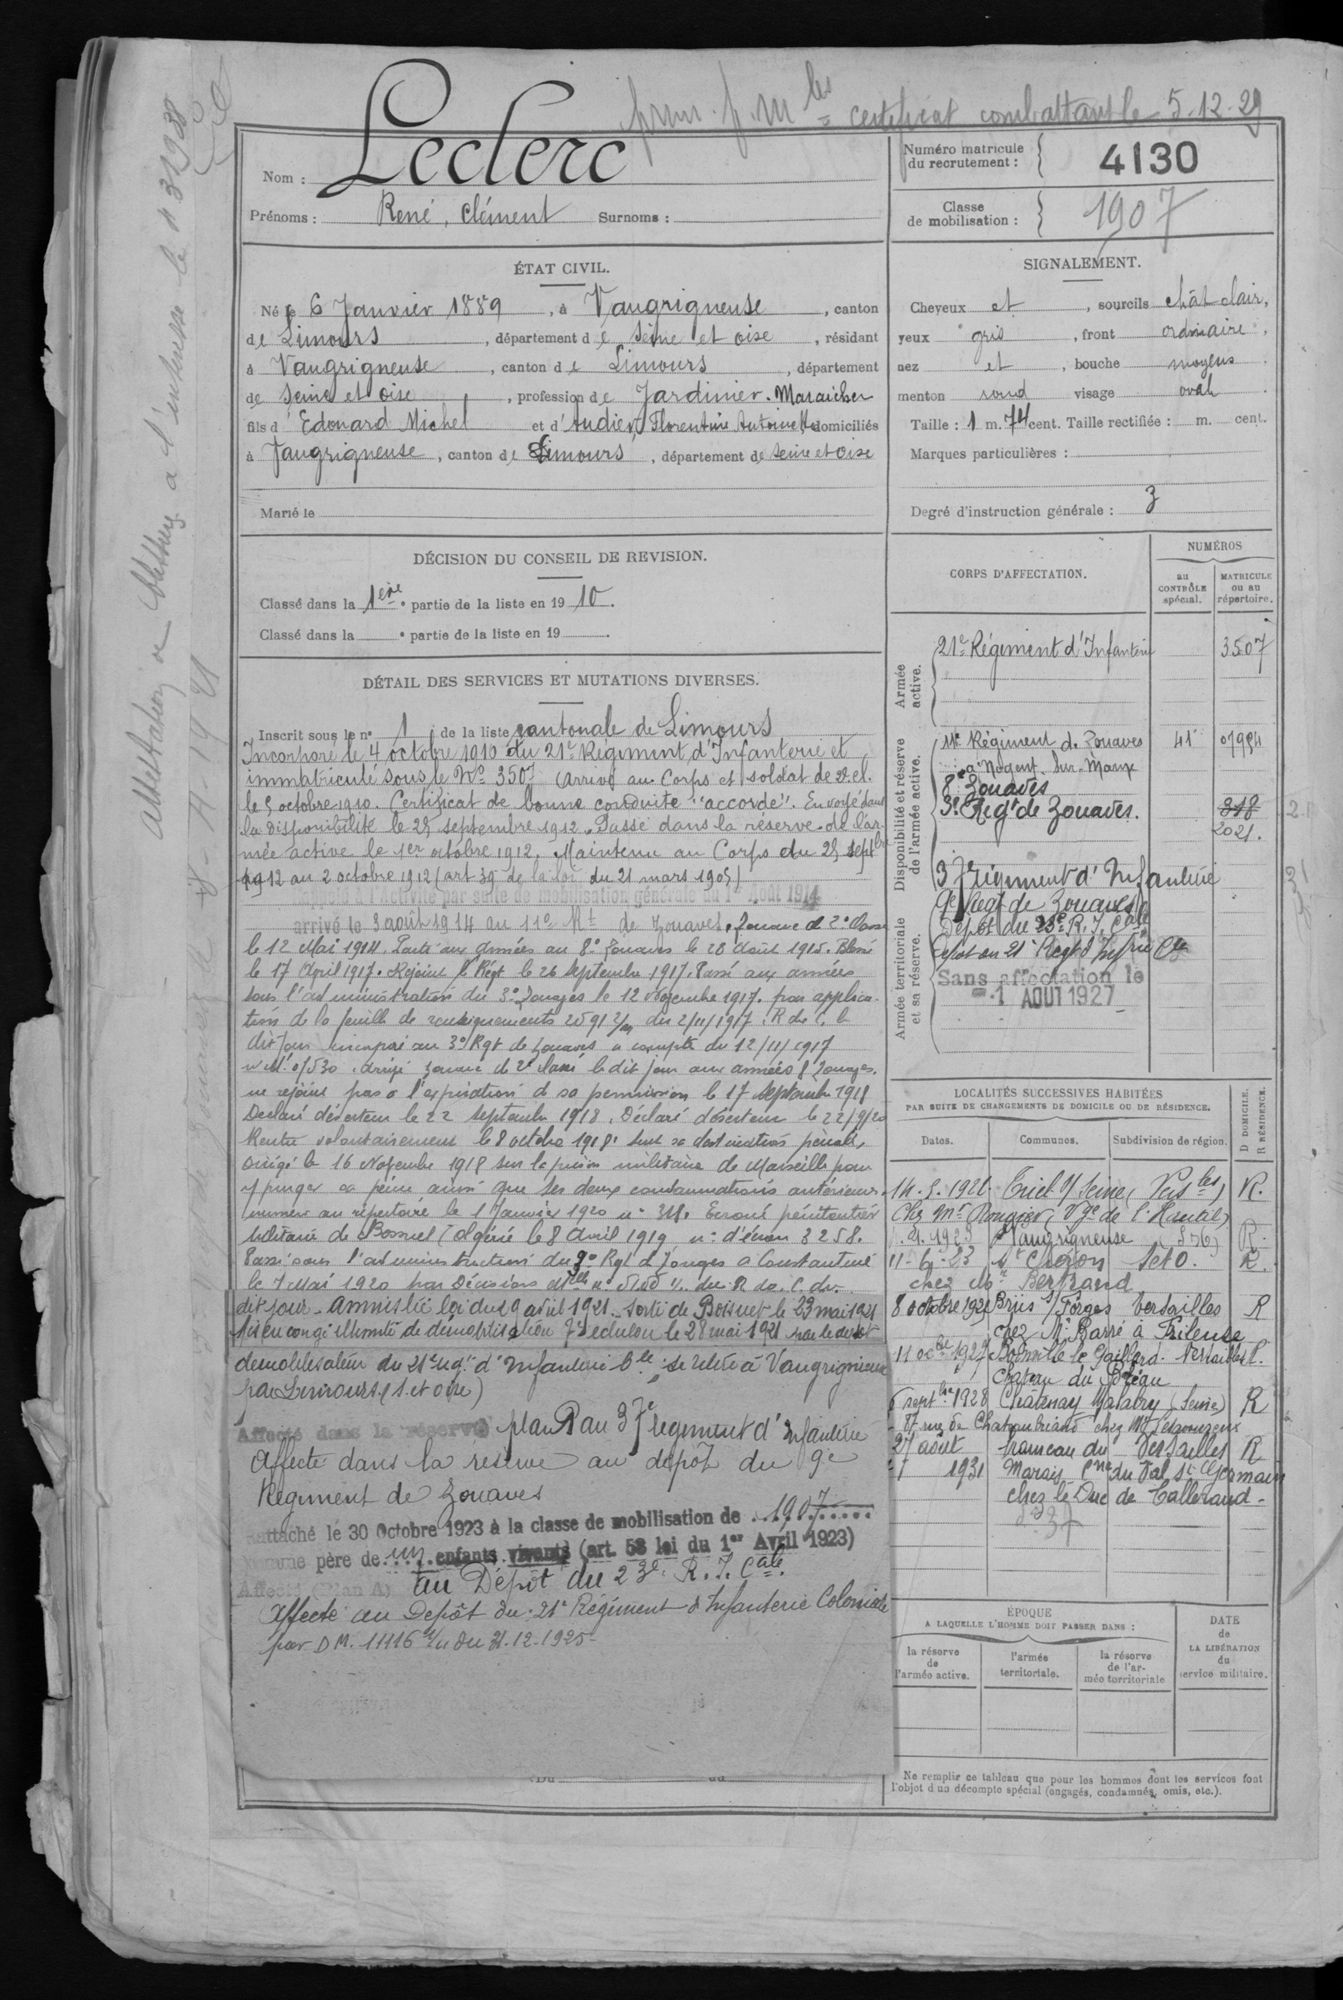 certificat combattant le 5-12-29
Nom : Leclerc
Prénoms : René, Clément Surnoms :
Numéro matricule du recrutement : 4130
Classe de mobilisation : 1907
ÉTAT CIVIL.
Né le 6 Janvier 1889, à Vaugrigneuse, canton
de Limours, département de Seine et oise, résidant
à Vaugrigneuse, canton de Limours, département
de Seine et oise, profession de Jardinier. Maraicher
fils d'Edouard Michel et d'Audier, Florentine Antoinette domiciliés
à Vaugrigneuse, canton de Limours, département de Seine et oise
Marié le
SIGNALEMENT.
Cheveux et , sourcils chât clair,
yeux gris , front ordinaire,
nez et , bouche moyens
menton rond visage ovale
Taille : 1 m. 74 cent. Taille rectifiée : m. cent.
Marques particulières :
Degré d'instruction générale : 3
DÉCISION DU CONSEIL DE REVISION.
Classé dans la 1ère partie de la liste en 1910.
Classé dans la e partie de la liste en 19 .
DÉTAIL DES SERVICES ET MUTATIONS DIVERSES.
Inscrit sous le n° 1 de la liste cantonale de Limours
Incorporé le 4 octobre 1910 du 21e Régiment d'Infanterie et
immatriculé sous le No 3507 Arrivé au Corps et soldat de 2e cl.
le 5 octobre 1910. Certificat de bonne conduite "accordé". Envoyé dans
la disponibilité le 25 septembre 1912. Passé dans la réserve de l'ar-
mée active le 1er octobre 1912. Maintenu au Corps du 25 septbre
1912 au 2 octobre 1912 (art 39 de la loi du 21 mars 1905)
Rappelé à l'activité par suite de mobilisation générale du 1er Août 1914
arrivé le 3 août 1914 au 11e Rt de Zouaves, Zouave de 2e classe
le 12 Mai 1914. Parti aux armées au 8e Zouaves le 28 Août 1915. Blessé
le 17 April 1917. Rejoint le Régt le 26 Septembre 1917. Passé aux armées
sous l'administration du 3e Zouaves le 12 Novembre 1917. par applica-
tion de la feuille de renseignements du 2/11/1917. R du C. le
dit jour incorporé au 3e Rgt de Zouaves à compter du 12/11/1917
zouave de 2e classe le dit jour aux armées 8e Zouaves.
ne rejoint pas à l'expiration de sa permission le 17 Septembre 1918
Déclaré déserteur le 22 septembre 1918. Déclaré déserteur le 22/9/20
Rentre volontairement le 8 octobre 1918.
Dirigé le 16 Novembre 1918 sur la prison militaire de Marseille pour
y purger sa peine ainsi que ses deux condamnations antérieures.
numéro au répertoire le 1 Janvier 1920 n° 318. Ecroué pénitentier
militaire de Bossuet (Algérie) le 8 Avril 1919 n° d'écrou 3258.
Passé sous l'administration du 3e Rgt de Zouaves à Constantine
le 7 Mai 1920 par Décision du R. de C. du
dit jour. Amnistié loi du 29 avril 1921. Sorti de Bossuet le 23 mai 1921
Mis en congé illimité de démobilisation 7e echelon le 28 mai 1921 par le dépôt
démobilisateur du 21e Rgt d'Infanterie Cle se retire à Vaugrigneuse
par Limours (S. et oise)
Affecté dans la réserve plan P au 37e regiment d'Infanterie
Affecté dans la réserve au dépôt du 9e
Régiment de Zouaves
Rattaché le 30 Octobre 1923 à la classe de mobilisation de 1907
comme père de un enfants vivants (art. 58 loi du 1er Avril 1923)
Affecté (Plan A) au Dépôt du 23e R. I. Cale.
Affecté au Depôt du 21e Régiment d'Infanterie Coloniale
par D M. 11116 du 21-12-1925-
CORPS D'AFFECTATION.
NUMÉROS
au CONTRÔLE spécial.
MATRICULE ou au répertoire.
Armée active.
21e Régiment d'Infanterie 3507
Disponibilité et réserve de l'armée active.
11e Régiment de Zouaves 41 07954
à Nogent-Sur-Marne
8e Zouaves
3e Régt de Zouaves. 318
2021.
37 régiment d'Infanterie
Armée territoriale et sa réserve.
9e Régt de Zouaves
Dépôt du 23e R. I. Cale
Dépôt du 21e Régt d'Infrie Cle
Sans affectation le
1 AOUT 1927
LOCALITÉS SUCCESSIVES HABITÉES
PAR SUITE DE CHANGEMENTS DE DOMICILE OU DE RÉSIDENCE.
Dates. Communes. Subdivision de région. D DOMICILE. R RÉSIDENCE.
14.5.1921 Triel s/ Seine (Vers les) R.
1923 Vaugrigneuse R.
11-6-23 St Chéron S et O. R.
chez Mr Bertrand
8 octobre 1925 Briis s/ Forges Versailles R
chez Mr Barré à Frileuse
11 1927 Bonnelle le Gaillard. Versailles R.
Chateau du
6 septbre 1928 Châtenay Malabry (Seine) R
87 rue de Chateaubriand chez Mr
27 août hameau du Versailles R
1931 Marais Cne du Val St Germain
chez le Duc de Talleraud-
ÉPOQUE
A LAQUELLE L'HOMME DOIT PASSER DANS :
la réserve de l'armée active.
l'armée territoriale.
la réserve de l'armée territoriale
DATE de LA LIBÉRATION du service militaire.
Ne remplir ce tableau que pour les hommes dont les services font
l'objet d'un décompte spécial (engagés, condamnés, omis, etc.).